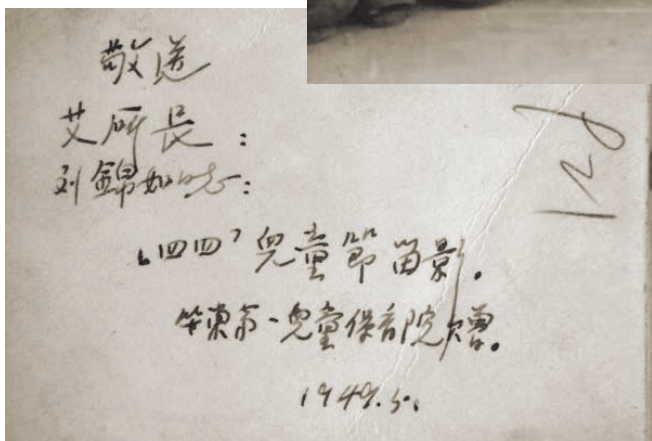 敬送
艾所長：
刘錦如同志：
“四四”兒童節留影。
华東第一兒童保育院贈。
1949.5.